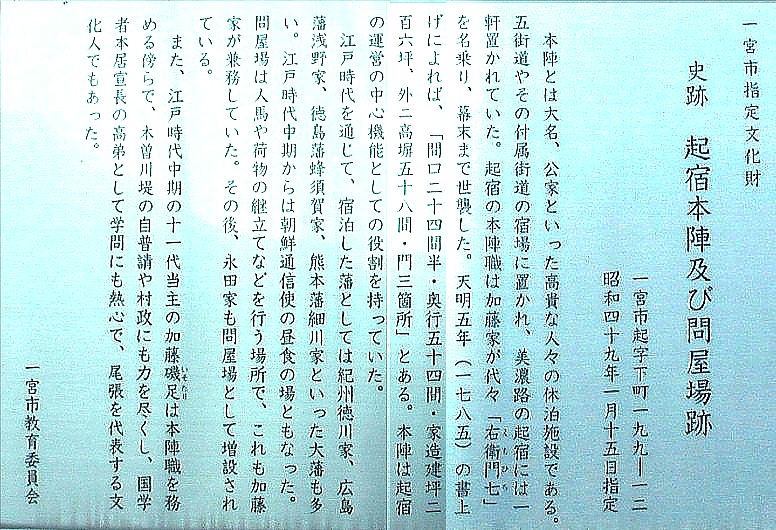 一宮市指定文化財
史跡　起宿本陣及び問屋場跡
一宮市起字下町一九九―一二
昭和四十九年一月十五日指定
本陣とは大名、公家といった高貴な人々の休泊施設である。
五街道やその付属街道の宿場に置かれ、美濃路の起宿には一
軒置かれていた。起宿の本陣職は加藤家が代々「右衛門七」
を名乗り、幕末まで世襲した。天明五年（一七八五）の書上
げによれば、「間口二十四間半・奥行五十四間・家造建坪二
百六坪、外ニ高塀五十八間・門三箇所」とある。本陣は起宿
の運営の中心機能としての役割を持っていた。
江戸時代を通じて、宿泊した藩としては紀州徳川家、広島
藩浅野家、徳島藩蜂須賀家、熊本藩細川家といった大藩も多
い。江戸時代中期からは朝鮮通信使の昼食の場ともなった。
問屋場は人馬や荷物の継立てなどを行う場所で、これも加藤
家が兼務していた。その後、永田家も問屋場として増設され
ている。
また、江戸時代中期の十一代当主の加藤磯足は本陣職を務
いそたり
める傍らで、木曽川堤の自普請や村政にも力を尽くし、国学
者本居宣長の高弟として学問にも熱心で、尾張を代表する文
化人でもあった。
一宮市教育委員会